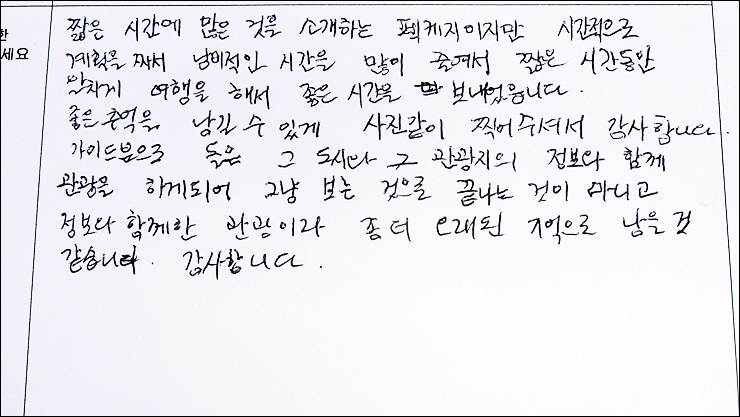 한
세요
짧은 시간에 많은 것을 소개하는 팩케지이지만 시간적으로
계획을 짜서 낭비적인 시간을 많이 줄여서 짧은 시간동안
알차게 여행을 해서 좋은 시간을 보내었읍니다.
좋은 추억을 남길 수 있게 사진같이 찍어주셔서 감사합니다.
가이드분으로 들은 그 도시나 그 관광지의 정보와 함께
관광을 하게되어 그냥 보는 것으로 끝나는 것이 아니고
정보와 함께한 관광이라 좀더 오래된 기억으로 남을 것
같습니다. 감사합니다.